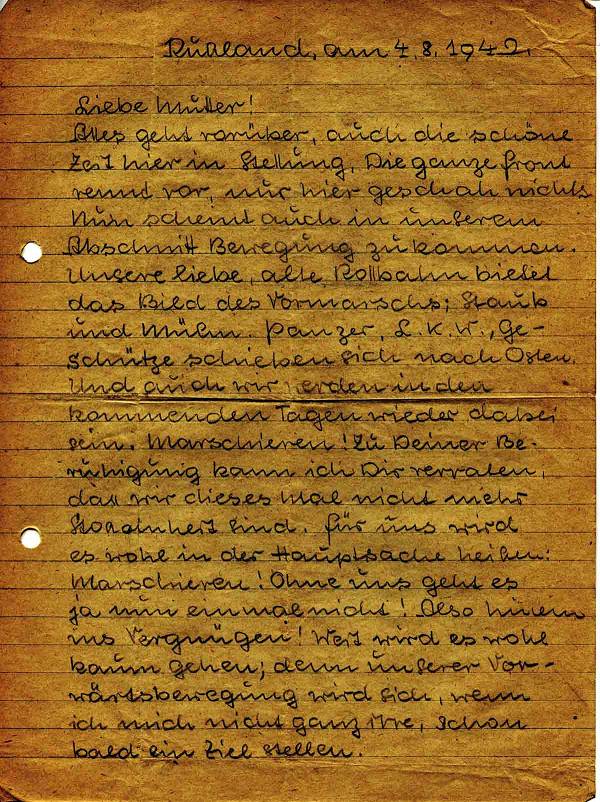 Rußland, am 4.8.1942.
Liebe Mutter!
Alles geht vorüber, auch die schöne
Zeit hier in Stellung. Die ganze Front
rennt vor, nur hier geschah nichts
Nun scheint auch in unserem
Abschnitt Bewegung zu kommen.
Unsere liebe, alte Rollbahn bietet
das Bild des Vormarschs; Staub
und Mulm. Panzer, L.K.W., Ge-
schütze schieben sich nach Osten.
Und auch wir werden in den
kommenden Tagen wieder dabei
sein. Marschieren! Zu Deiner Be-
ruhigung kann ich Dir verraten,
daß wir dieses Mal nicht mehr
sind. Für uns wird
es wohl in der Hauptsache heißen:
Marschieren! Ohne uns geht es
ja nun einmal nicht! Also hinein
ins Vergnügen! Weit wird es wohl
kaum gehen; denn unserer Vor-
wärtsbewegung wird sich, wenn
ich mich nicht ganz irre, schon
bald ein Ziel stellen.